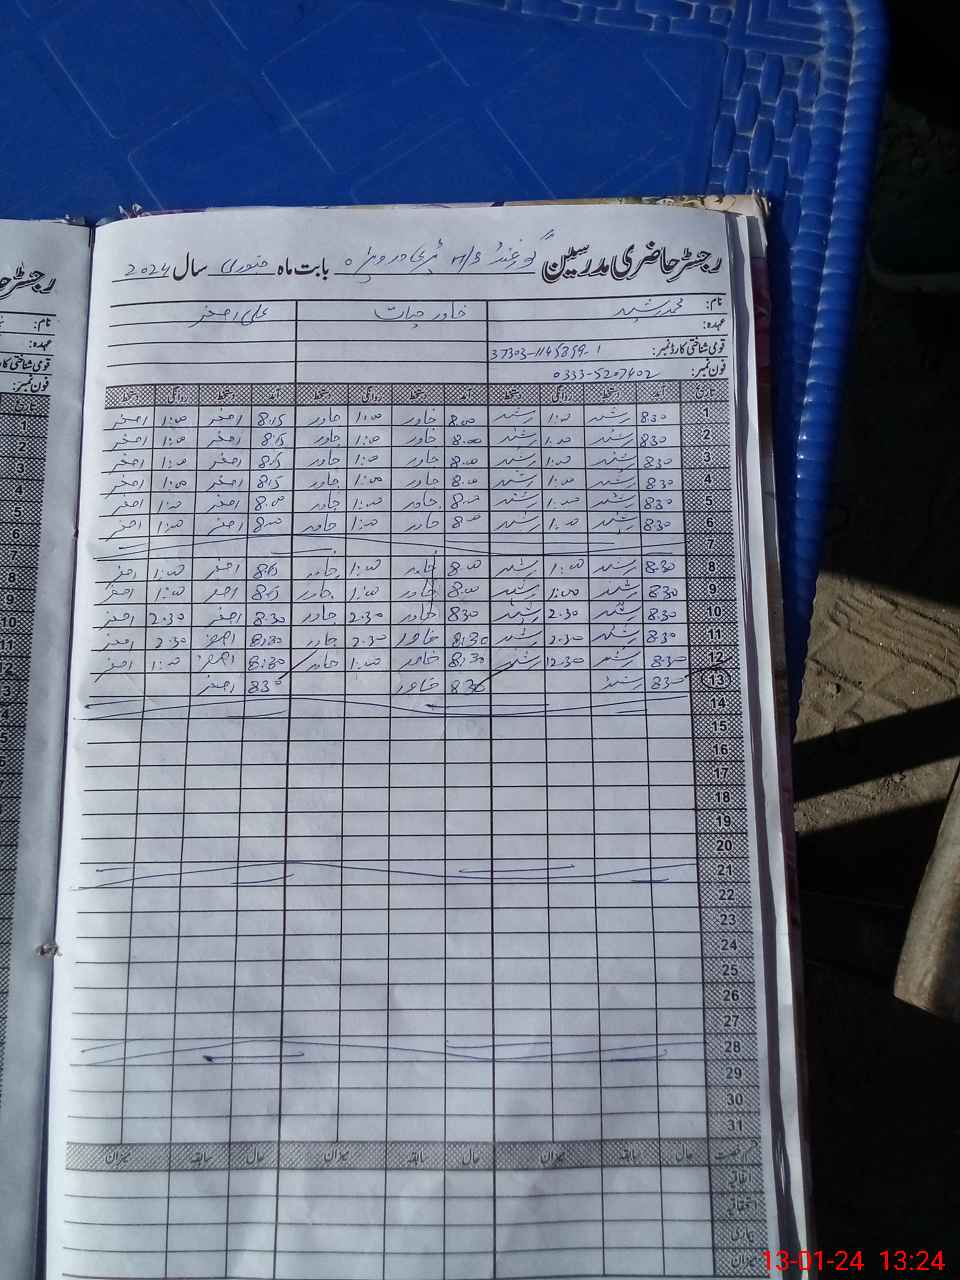 رجسٹر حاضری مدرسین گورنمنٹ H/S بابت ماہ جنوری سال 2024
نام: محمد رشید خاور حیات علی اصغر
عہدہ:
قومی شناختی کارڈ نمبر:
فون نمبر: 0333-5207402
تاریخ آمد دستخط روانگی دستخط آمد دستخط روانگی دستخط آمد دستخط روانگی دستخط
1 8:30 رشید 1:00 رشید 8:00 خاور 1:00 خاور 8:15 اصغر 1:00 اصغر
2 8:30 رشید 1:00 رشید 8:00 خاور 1:00 خاور 8:15 اصغر 1:00 اصغر
3 8:30 رشید 1:00 رشید 8:00 خاور 1:00 خاور 8:15 اصغر 1:00 اصغر
4 8:30 رشید 1:00 رشید 8:00 خاور 1:00 خاور 8:15 اصغر 1:00 اصغر
5 8:30 رشید 1:00 رشید 8:00 خاور 1:00 خاور 8:00 اصغر 1:00 اصغر
6 8:30 رشید 1:00 رشید 8:00 خاور 1:00 خاور 8:00 اصغر 1:00 اصغر
7
8 8:30 رشید 1:00 رشید 8:00 خاور 1:00 خاور 8:15 اصغر 1:00 اصغر
9 8:30 رشید 1:00 رشید 8:00 خاور 1:00 خاور 8:15 اصغر 1:00 اصغر
10 8:30 رشید 2:30 رشید 8:30 خاور 2:30 خاور 8:30 اصغر 2:30 اصغر
11 8:30 رشید 2:30 رشید 8:30 خاور 2:30 خاور 8:30 اصغر 2:30 اصغر
12 8:30 رشید 12:30 رشید 8:30 خاور 1:00 خاور 8:30 اصغر 1:00 اصغر
13 8:30 رشید 8:30 خاور 8:30 اصغر
14
15
16
17
18
19
20
21
22
23
24
25
26
27
28
29
30
31
رخصت حال سابقہ میزان حال سابقہ میزان حال سابقہ میزان
اتفاقیہ
استحقاقیہ
بیماری
میزان
13-01-24 13:24